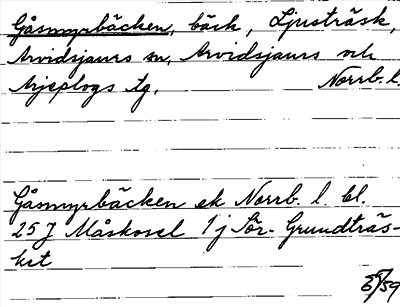 Gåsmyrbäcken, bäck, Ljusträsk,
Arvidsjaurs sn, Arvidsjaurs och
Arjeplogs tg, Norrb. l.
Gåsmyrbäcken ek Norrb. l. bl.
25 J Måskosel 1 j Sör-Grundträs-
ket
59